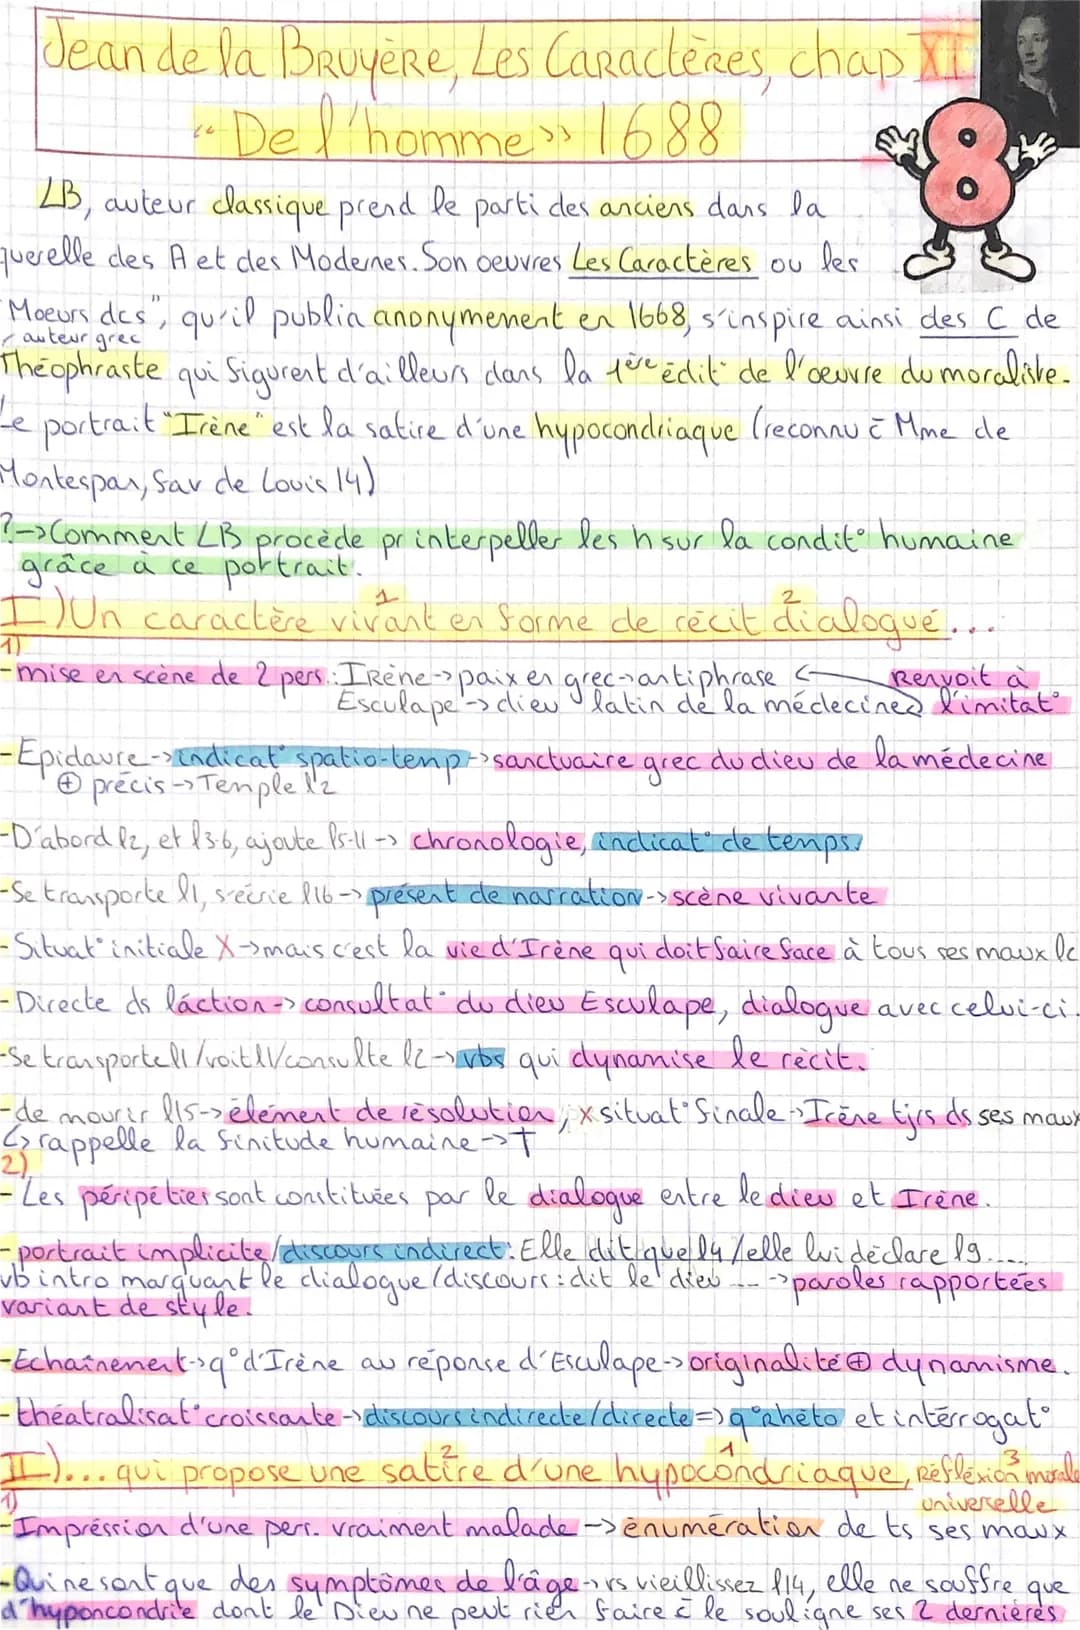 Jean de la BRUYèRE, Les CaRactèRes, chap XI
"De l'homme" 1688
LB, auteur classique prend le parti des anciens dans la
querelle des A et des Modernes. Son oeuvres Les Caractères ou les
"Moeurs dcs", qu'il publia anonymement en 1668, s'inspire ainsi des C de
auteur grec
Théophraste qui figurent d'ailleurs dans la 1ère édit° de l'oeuvre du moraliste.
Le portrait "Irène" est la satire d'une hypocondriaque (reconnu c̄ Mme de
Montespan, fav de Louis 14)
?->Comment LB procède pr interpeller les h sur la condit° humaine
grâce à ce portrait.
I) Un caractère vivant en forme de récit dialogué...
1 2
1)
-mise en scène de 2 pers.: IRène->paix en grec->antiphrase <- Renvoit à
Esculape -> dieu latin de la médecine l'imitat°
-Epidaure->indicat° spatio-temp->sanctuaire grec du dieu de la médecine
⊕ précis -> Temple l2
-D'abord l2, et l3-6, ajoute l5-11 -> chronologie, indicat° de temps.
-Se transporte l1, s'écrie l16 -> présent de narration -> scène vivante
-Situat° initiale X->mais c'est la vie d'Irène qui doit faire face à tous ses maux lc
-Directe ds láction -> consultat° du dieu Esculape, dialogue avec celui-ci.
-Se transporte l1/voit l1/consulte l2 -> vbs qui dynamise le récit.
-de mourir l15->élément de résolution, x situat° finale -> Irène tjrs ds ses maux
↳ rappelle la finitude humaine -> †
2)
-Les péripéties sont constituées par le dialogue entre le dieu et Irène.
-portrait implicite/discours indirect: Elle dit que l4/elle lui déclare l9.....
vb intro marquant le dialogue/discours: dit le dieu ... -> paroles rapportées
variant de style.
-Echaînement->q° d'Irène au réponse d'Esculape->originalité ⊕ dynamisme.
-théatralisat° croissante->discours indirecte/directe=>q° rhéto et intérrogat°
II)... qui propose une satire d'une hypocondriaque, Réfléxion morale
2 1 3
universelle
1)
-Impréssion d'une pers. vraiment malade -> énumération de ts ses maux
-Qui ne sont que des symptômes de l'âge -> vs vieillissez l14, elle ne souffre que
d'hyponcondrie dont le Dieu ne peut rien faire c̄ le souligne ses 2 dernières